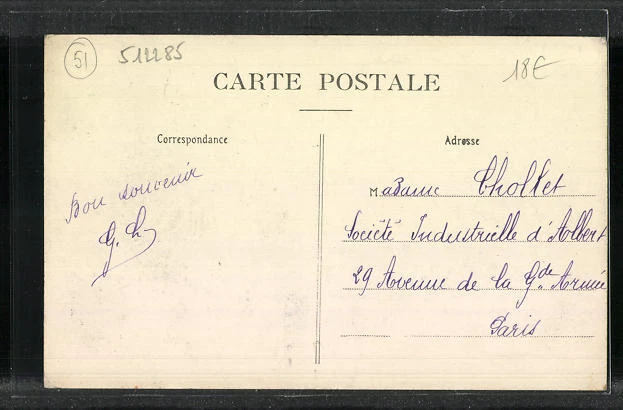 51
512285
18€
CARTE POSTALE
Correspondance
Adresse
Bon souvenir
G. L
Madame Chollet
Société Industrielle d'Albert
29 Avenue de la Gde Armée
Paris